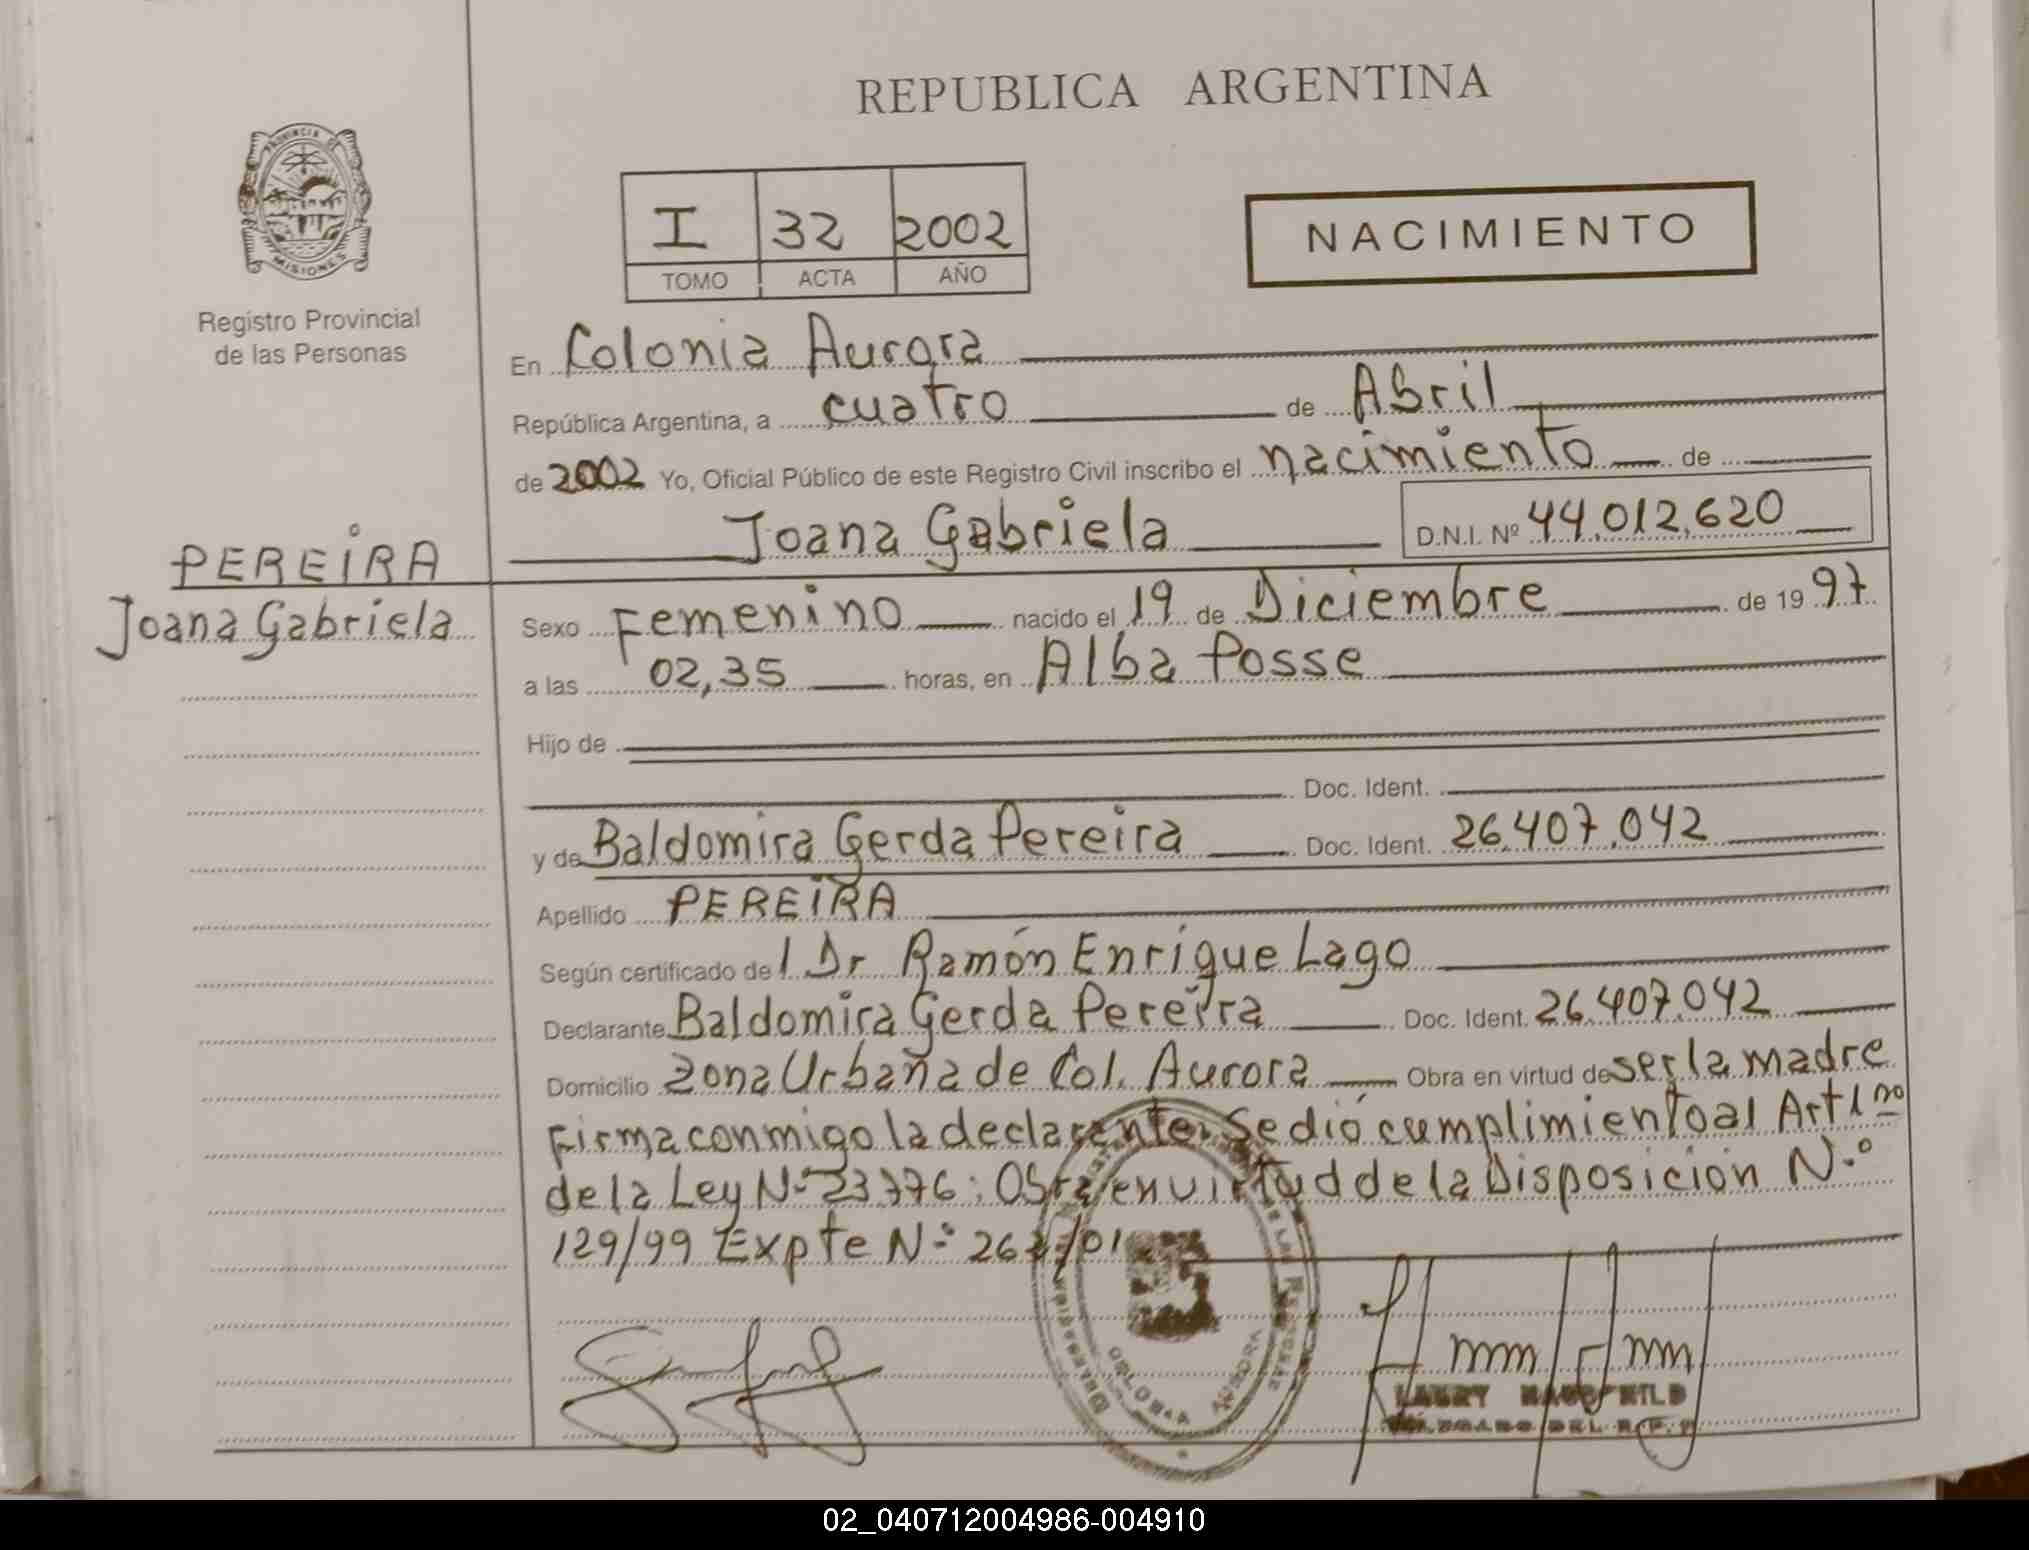 REPUBLICA ARGENTINA
PROVINCIA DE
MISIONES
Registro Provincial
de las Personas
I 32 2002
TOMO ACTA AÑO
NACIMIENTO
En Colonia Aurora
República Argentina, a cuatro de Abril
de 2002 Yo, Oficial Público de este Registro Civil inscribo el nacimiento de
Joana Gabriela D.N.I. Nº 44.012.620
PEREIRA
Joana Gabriela
Sexo Femenino nacido el 19 de Diciembre de 19 97
a las 02,35 horas, en Alba Posse
Hijo de
Doc. Ident.
y de Baldomira Gerda Pereira Doc. Ident. 26.407.042
Apellido PEREIRA
Según certificado del Dr Ramón Enrique Lago
Declarante Baldomira Gerda Pereira Doc. Ident. 26.407.042
Domicilio Zona Urbana de Col. Aurora Obra en virtud de ser la madre
Firma conmigo la declarante. Se dió cumplimiento al Art 1 no
de la Ley Nº 23776: Obra en virtud de la Disposición N.º
129/99 Expte N.º /01
COLONIA AURORA
DEL R.P.P
02_040712004986-004910